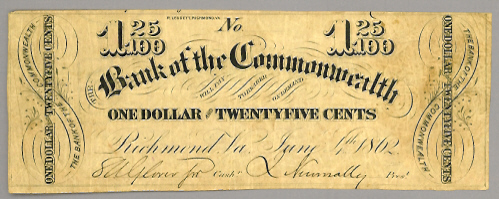 No.
1 25/100
1 25/100
THE
Bank of the Commonwealth
WILL PAY TO BEARER ON DEMAND
ONE DOLLAR AND TWENTYFIVE CENTS
Richmond Va. Jany 1862
Cash.r
Pres.
ONE DOLLAR AND TWENTYFIVE CENTS
THE BANK OF THE COMMONWEALTH
ONE DOLLAR AND TWENTYFIVE CENTS
THE BANK OF THE COMMONWEALTH